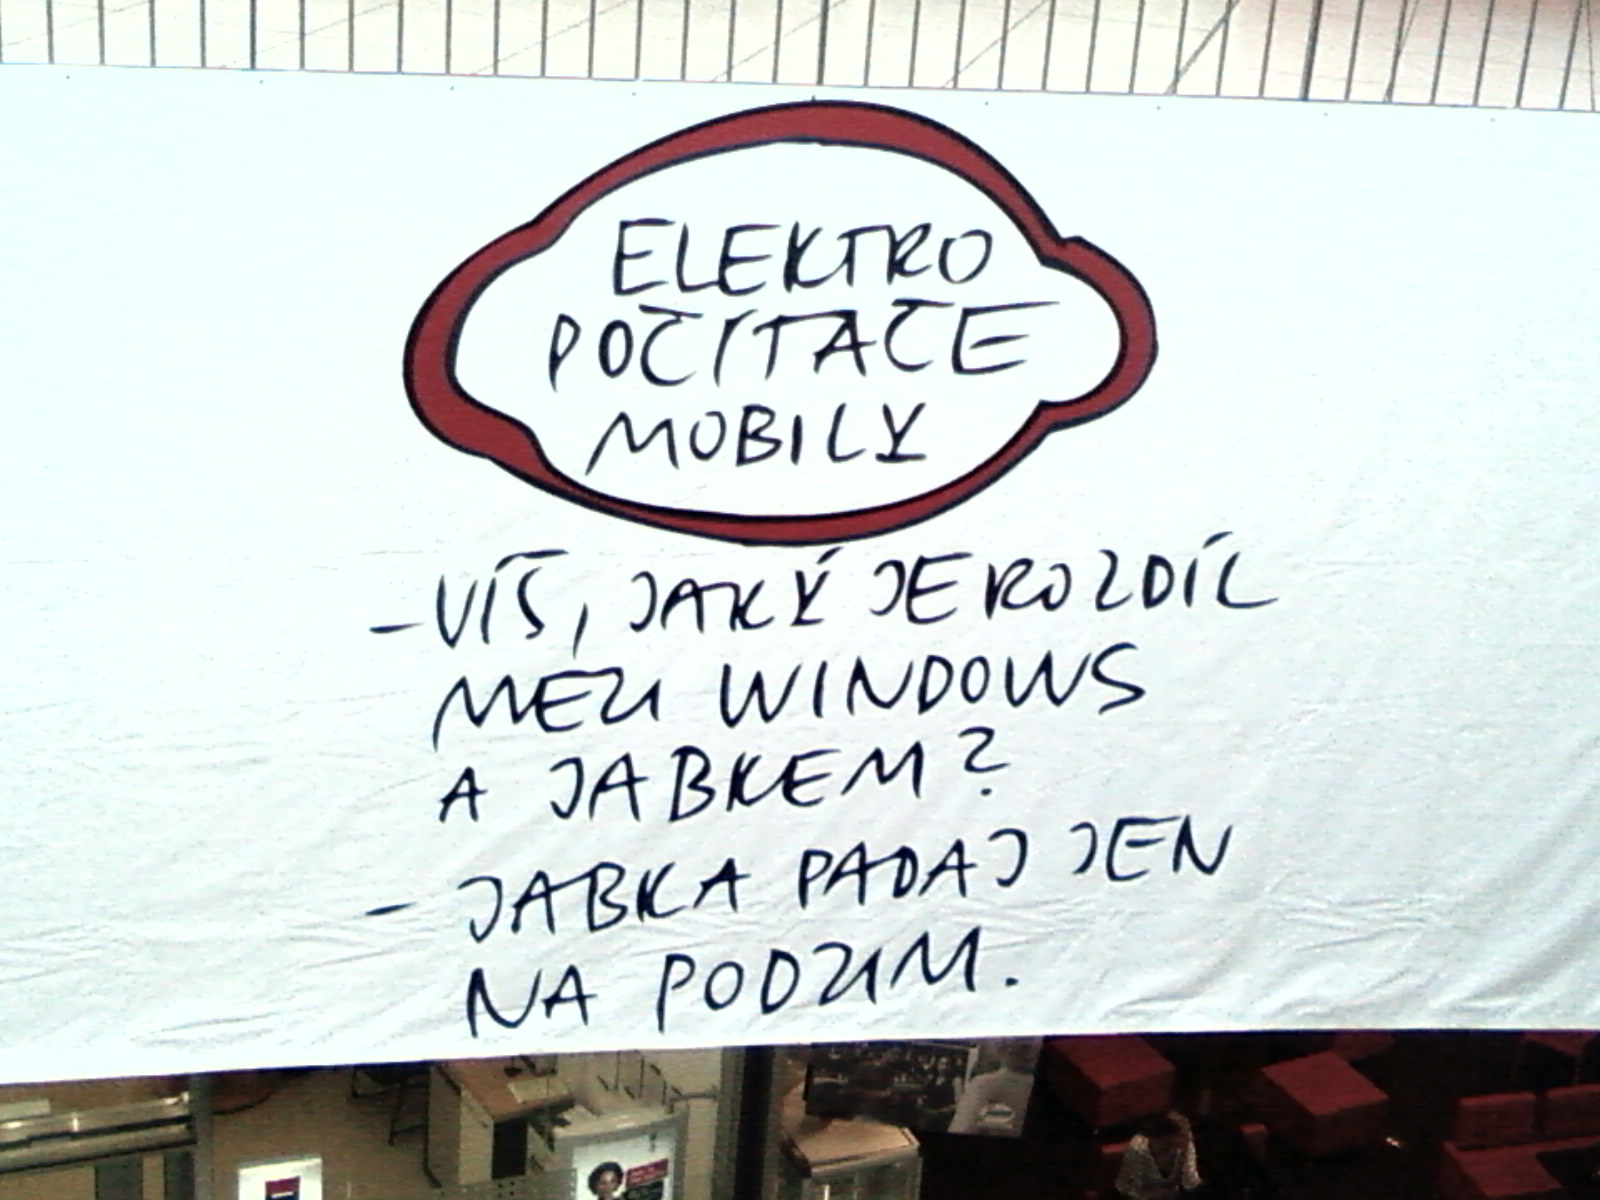 ELEKTRO
POČÍTAČE
MOBILY
- VÍŠ, JAKÝ JE ROZDÍL
MEZI WINDOWS
A JABKEM?
- JABKA PADAJ JEN
NA PODZIM.